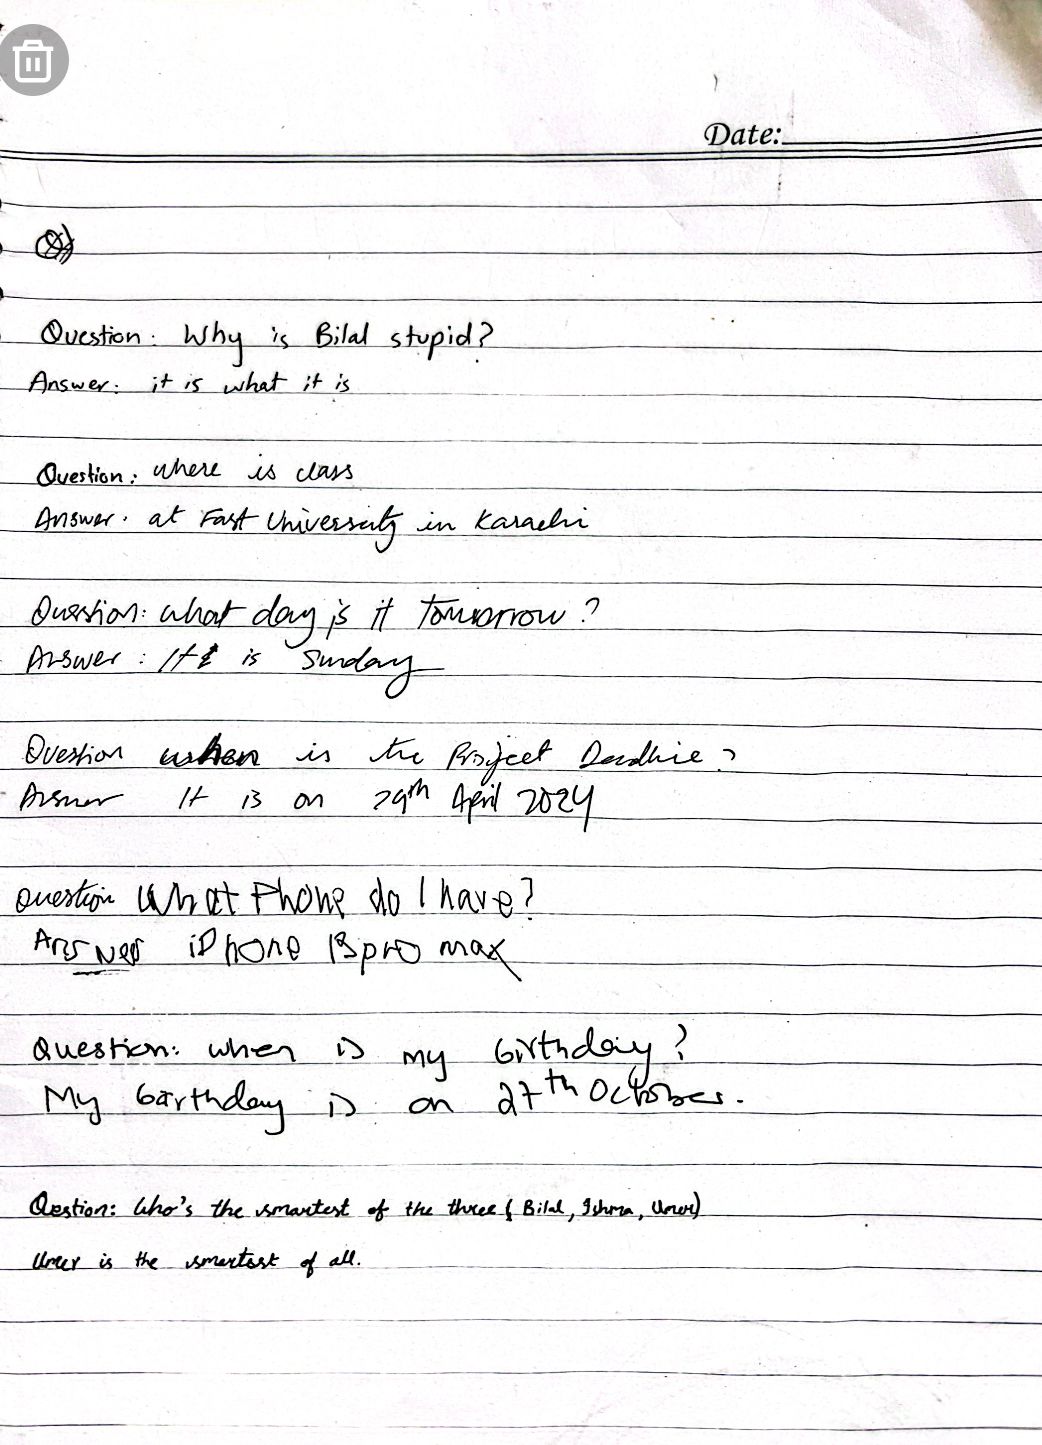 Date:
Question: Why is Bilal stupid?
Answer: it is what it is
Question: where is class
Answer: at Fast University in Karachi
Question: what day is it tomorrow?
Answer: It is Sunday
Question when is the Project Deadline?
Answer It is on 29th April 2024
Question What Phone do I have?
Answer iPhone 13 pro max
Question: when is my birthday?
My birthday is on 27th October.
Qestion: Who's the smartest of the three (Bilal, Ishma, Umer)
Umer is the smartest of all.